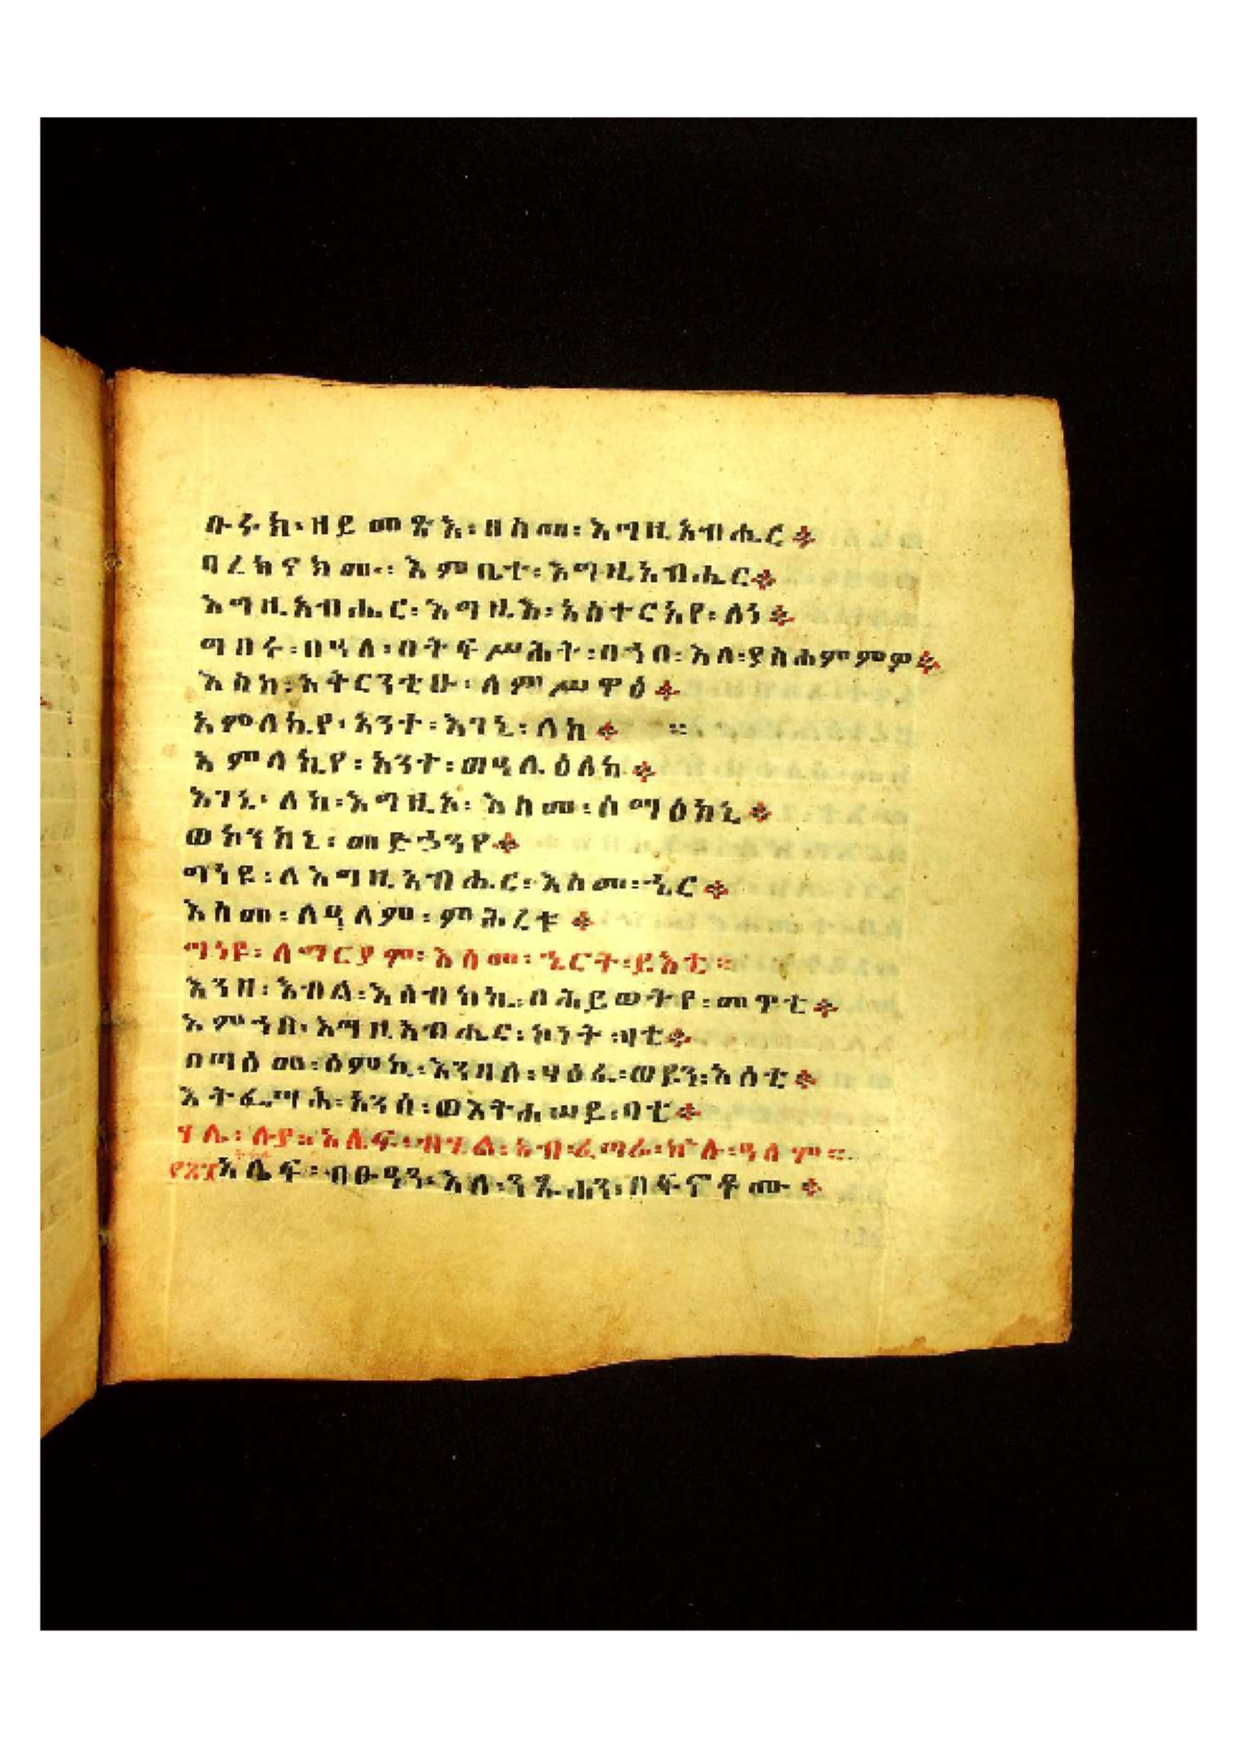 ቡሩክ፡ዘይመጽእ፡በስመ፡እግዚአብሔር፨
ባረክናክሙ፡እምቤተ፡እግዚአብሔር፨
እግዚአብሔር፡እግዚእ፡አስተርአየ፡ለነ፨
ግበሩ፡በዓለ፡በትፍሥሕት፡በኀበ፡እለ፡ያስሐምምዎ፨
እስከ፡አትርንቲሁ፡ለምሥዋዕ፨
አምላኪየ፡አንተ፡እገኒ፡ለከ፨ ።
አምላኪየ፡አንተ፡ወዓሌዕለከ፨
እገኒ፡ለከ፡እግዚኦ፡እስመ፡ሰማዕከኒ፨
ወኮንከኒ፡መድኃንየ፨
ግነዩ፡ለእግዚአብሔር፡እስመ፡ኄር፨
እስመ፡ለዓለም፡ምሕረቱ፨
ግነዩ፡ለማርያም፡እስመ፡ኄርት፡ይእቲ።
እንዘ፡እብል፡እሴብከኪ፡በሕይወትየ፡መጥቲ፨
እምኀበ፡እግዚአብሔር፡ኮነት፡ዛቲ፨
በጣዕመ፡ዕምኪ፡እንዘሰ፡ሃዕፈ፡ወይን፡እሰቲ፨
እትፌሣሕ፡አንሰ፡ወእትሐሠይ፡ባቲ፨
ሃሌ፡ሉያ፡አሌፍ፡ብሂል፡አብ፡ፈጣሬ፡ኵሉ፡ዓለም።
፻፲፰አሌፍ፡ብፁዓን፡እለ፡ንጹሐን፡በፍኖቶሙ፨